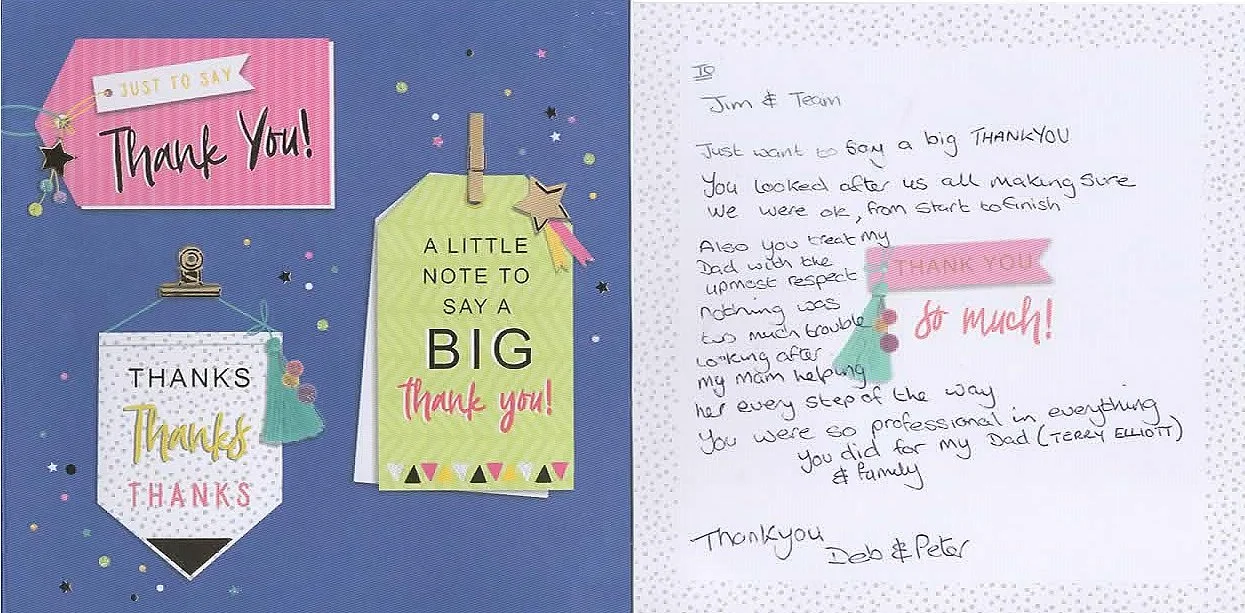 JUST TO SAY
Thank You!
A LITTLE
NOTE TO
SAY A
BIG
thank you!
THANKS
Thanks
THANKS
To
Jim & Team
Just want to say a big THANKYOU
You looked after us all making sure
we were ok, from start to finish
Also you treat my
Dad with the
upmost respect
nothing was
too much trouble
looking after
my mam helping
her every step of the way
You were so professional in everything
you did for my Dad (TERRY ELLIOTT)
& family
THANK YOU
so much!
Thankyou
Deb & Peter